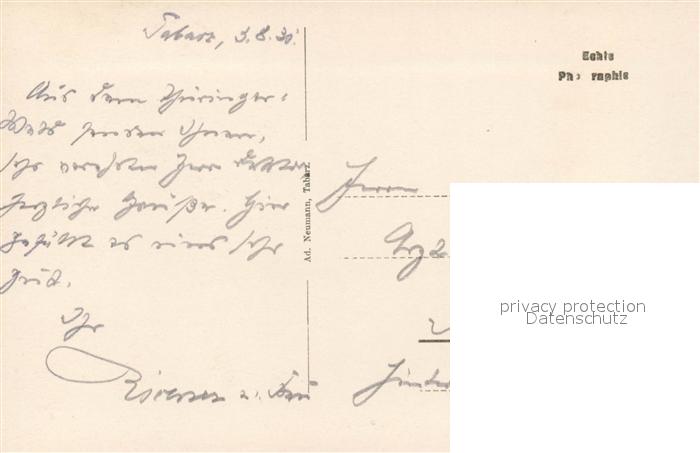 Tabarz, 3.8.30.
Aus dem Thüringer-
Wald senden Ihnen,
sehr verehrter Herr Doktor
herzliche Grüße. Hier
gefällt es uns sehr
gut.
Ihr
u. Frau
Ad. Neumann, Tabarz.
Echte
Ph raphie
Herrn
privacy protection
Datenschutz